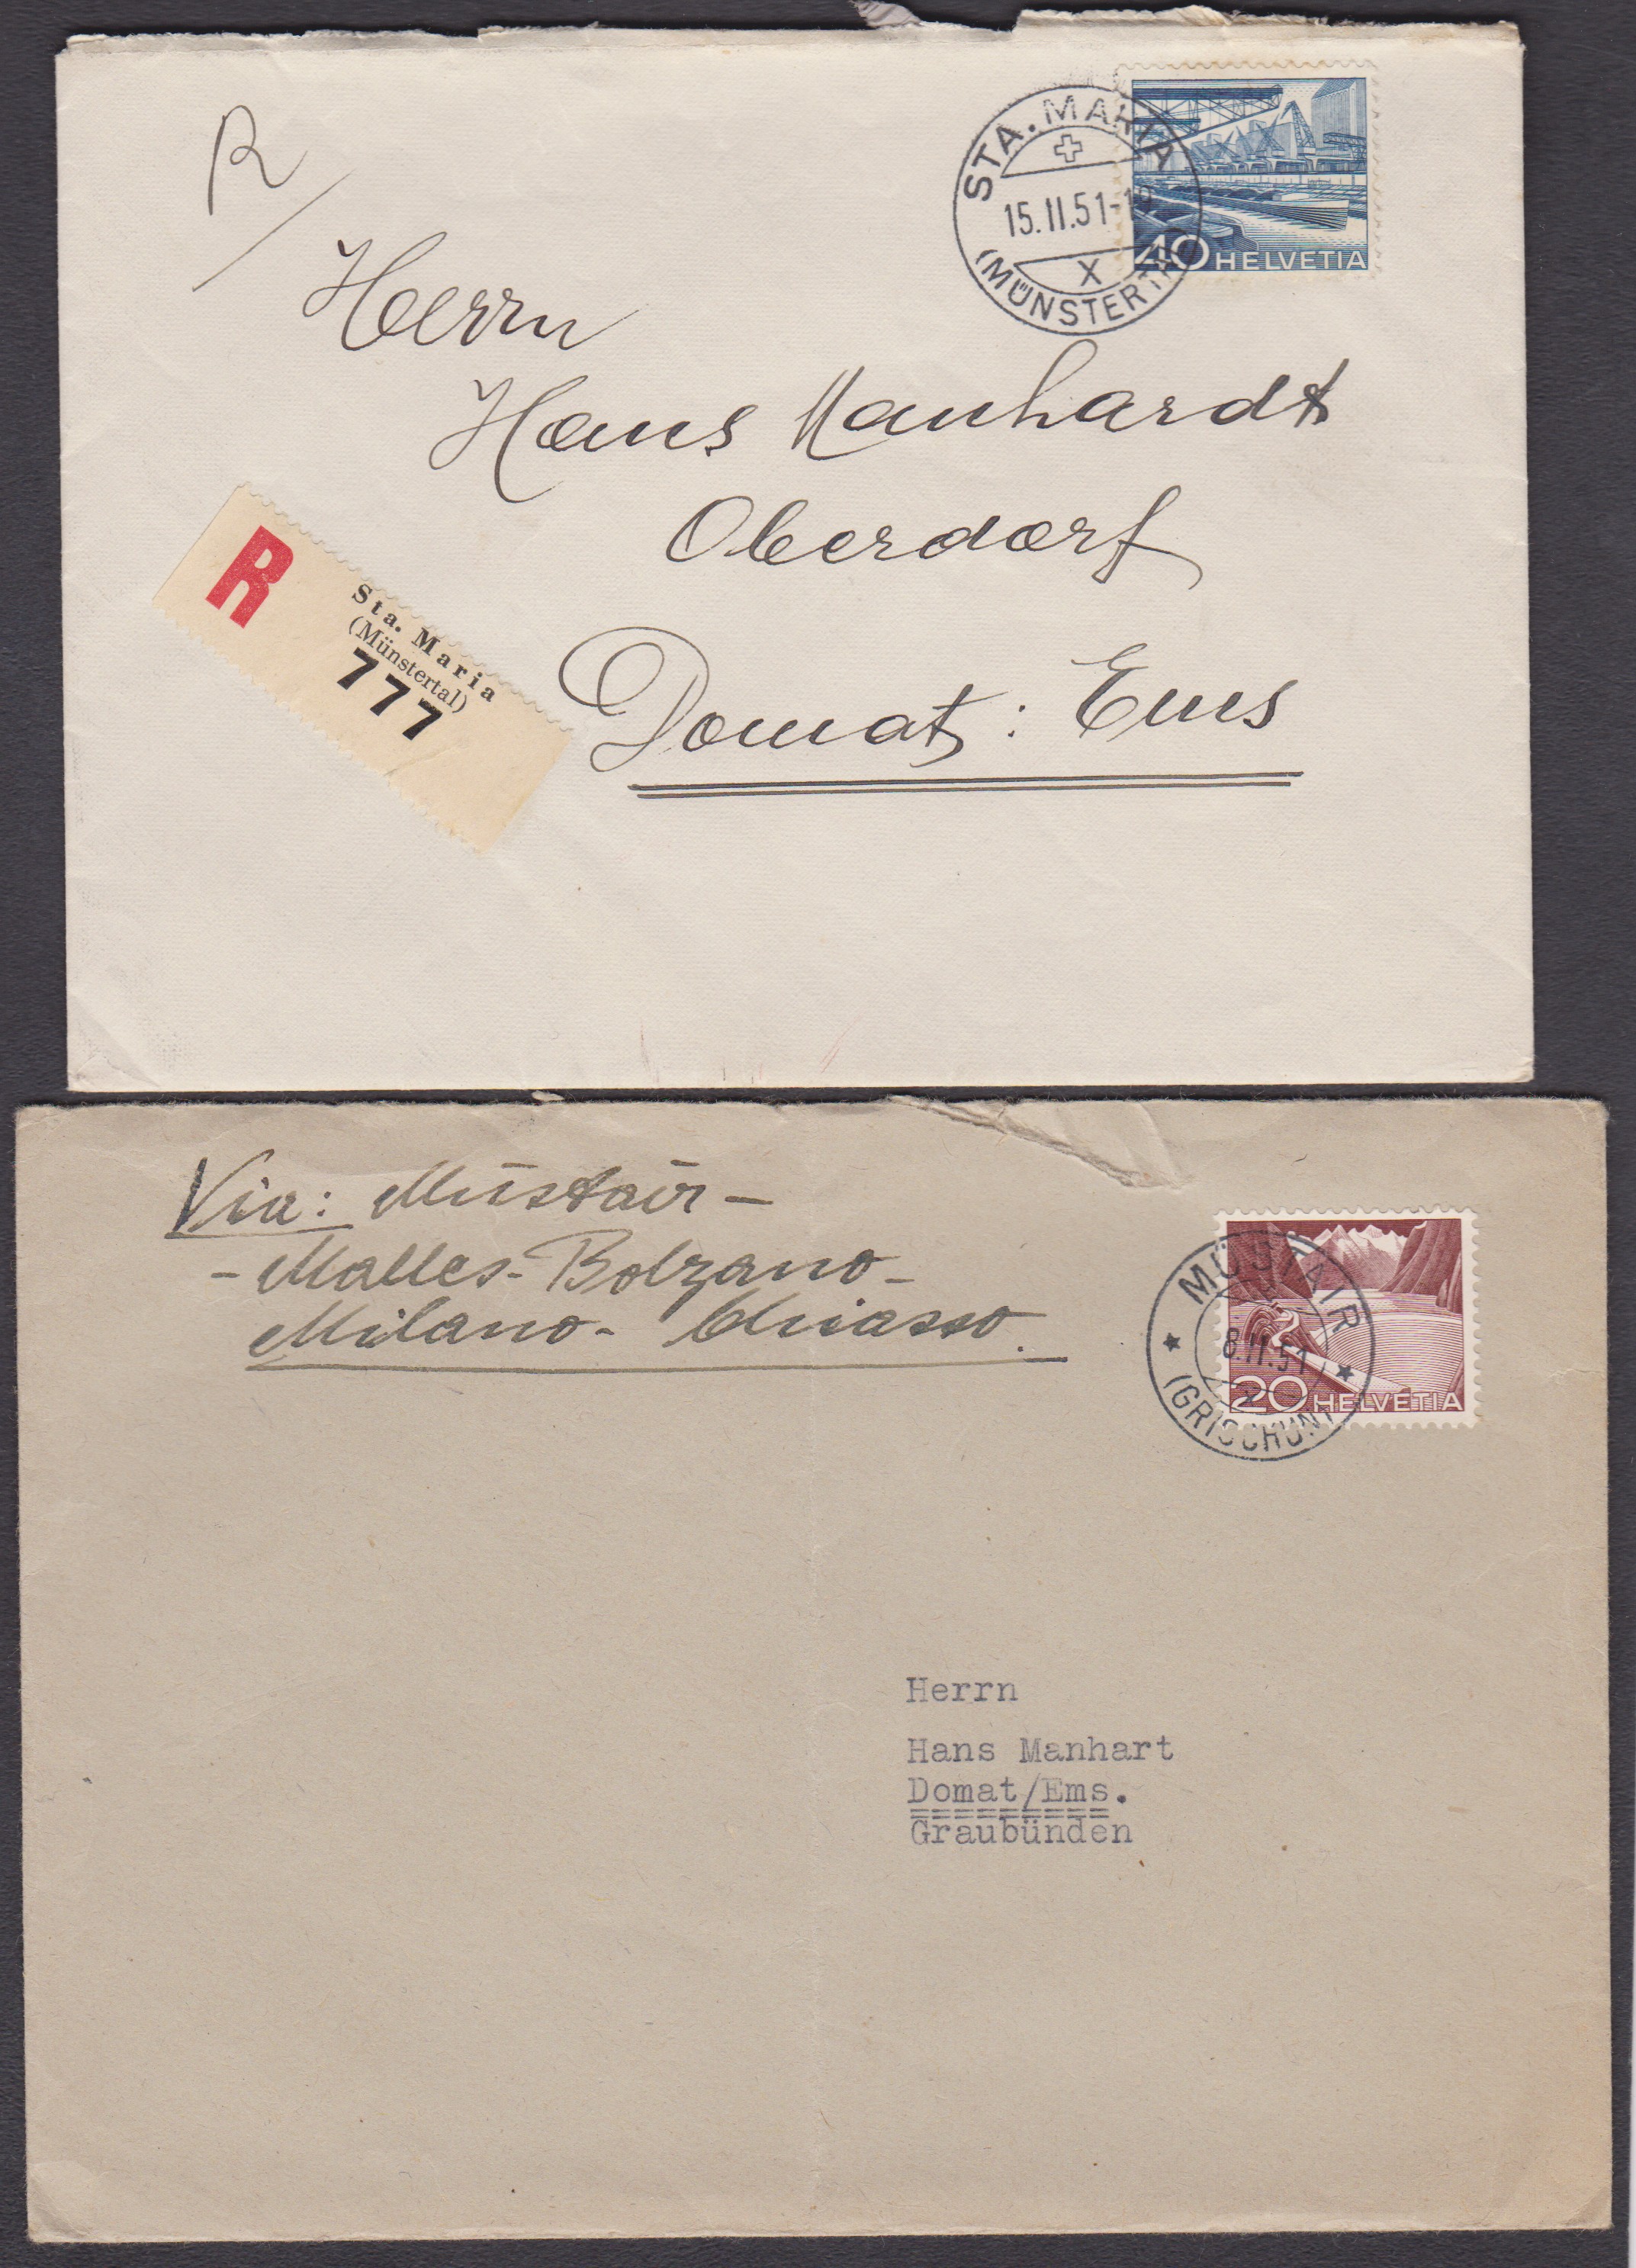 R
STA. MARIA
15.II.51-1
X
(MÜNSTERTAL)
40 HELVETIA
Herrn
Hans Manhardt
Oberdorf
Domat: Ems
R
Sta. Maria
(Münstertal)
777
Via: Müstair-
-Malles-Bolzano-
Milano-Chiasso.
MÜSTAIR
8.II.51
(GRISCHUN)
20 HELVETIA
Herrn
Hans Manhart
Domat/Ems.
=========
Graubünden